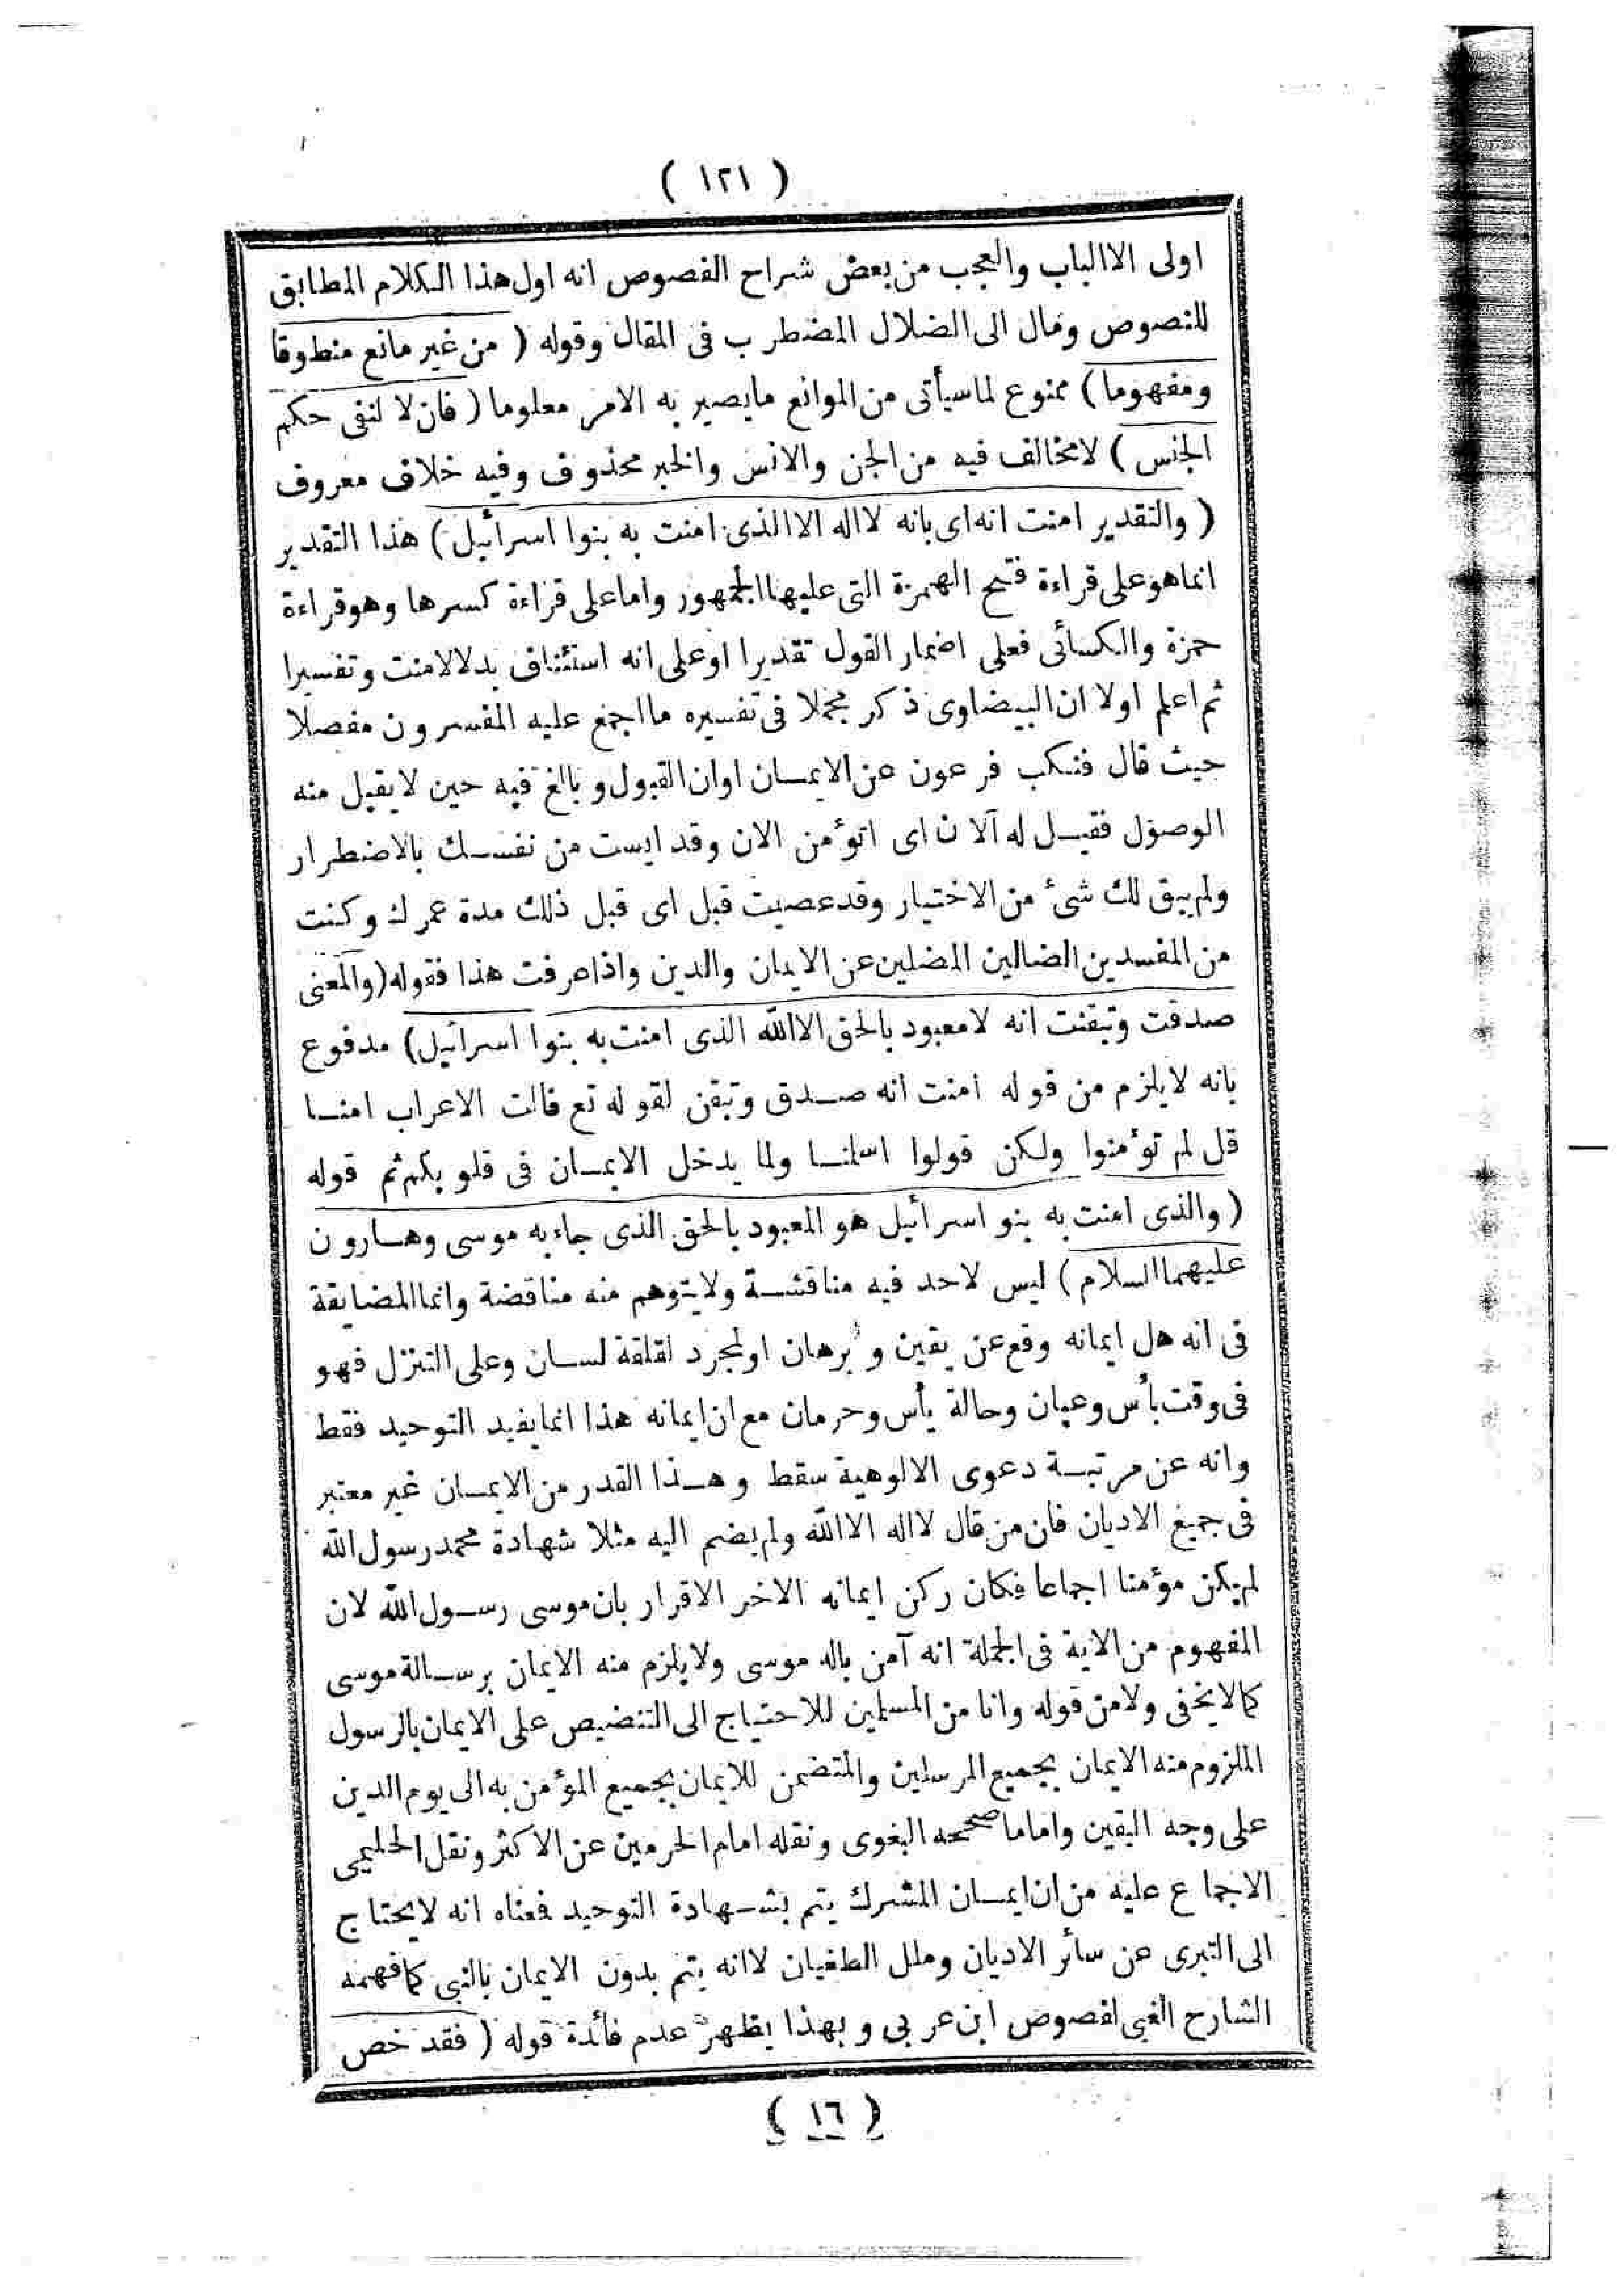 ( ١٢١ )
اولى الاالباب والعجب من بعض شراح الفصوص انه اول هذا الكلام المطابق
للنصوص ومال الى الضلال المضطرب فى المقال وقوله ( من غير مانع منطوقا
ومفهوما ) ممنوع لما سيأتى من الموانع مايصير به الامر معلوما ( فان لا لنفى حكم
الجنس ) لا مخالف فيه من الجن والانس والخبر محذوف وفيه خلاف معروف
( والتقدير امنت انه اى بانه لااله الا الذى امنت به بنوا اسرأئيل ) هذا التقدير
انما هو على قراءة فتح الهمزة التى عليها الجمهور واما على قراءة كسرها وهو قراءة
حمزة والكسائى فعلى اضمار القول تقديرا اوعلى انه استئناف بدلا لامنت وتفسيرا
ثم اعلم اولا ان البيضاوى ذكر مجملا فى تفسيره ما اجمع عليه المفسرون مفصلا
حيث قال فنكب فرعون عن الايمان اوان القبول وبالغ فيه حين لايقبل منه
الوصول فقيل له آلان اى اتؤمن الان وقد ايست من نفسك بالاضطرار
ولم يبق لك شئ من الاختيار وقد عصيت قبل اى قبل ذلك مدة عمرك وكنت
من المفسدين الضالين المضلين عن الايمان والدين واذا عرفت هذا فقوله ( والمعنى
صدقت وتيقنت انه لا معبود بالحق الا الله الذى امنت به بنوا اسرائيل ) مدفوع
بانه لايلزم من قوله امنت انه صدق وتيقن لقوله تع قالت الاعراب امنا
قل لم تؤمنوا ولكن قولوا اسلمنا ولما يدخل الايمان فى قلوبكم ثم قوله
( والذى امنت به بنو اسرأئيل هو المعبود بالحق الذى جاء به موسى وهارون
عليهما السلام ) ليس لاحد فيه مناقشة ولايتوهم منه مناقضة وانما المضايقة
فى انه هل ايمانه وقع عن يقين وبرهان او لمجرد لقلقة لسان وعلى التنزل فهو
فى وقت بأس وعيان وحالة يأس وحرمان مع ان ايمانه هذا انما يفيد التوحيد فقط
وانه عن مرتبة دعوى الالوهية سقط وهذا القدر من الايمان غير معتبر
فى جميع الاديان فان من قال لااله الا الله ولم يضم اليه مثلا شهادة محمد رسول الله
لم يكن مؤمنا اجماعا فكان ركن ايمانه الاخر الاقرار بان موسى رسول الله لان
المفهوم من الاية فى الجملة انه آمن باله موسى ولايلزم منه الايمان برسالة موسى
كما لايخفى ولا من قوله وانا من المسلمين للاحتياج الى التنضيص على الايمان بالرسول
الملزوم منه الايمان بجميع المرسلين والمتضمن للايمان بجميع المؤمن به الى يوم الدين
على وجه اليقين واما ما صححه البغوى ونقله امام الحرمين عن الاكثر ونقل الحليمى
الاجماع عليه من ان ايمان المشرك يتم بشهادة التوحيد فمعناه انه لايحتاج
الى التبرى عن سائر الاديان وملل الطغيان لا انه يتم بدون الايمان بالنبى كما فهمه
الشارح الغبى لفصوص ابن عربى وبهذا يظهر عدم فائدة قوله ( فقد خص
( ١٦ )